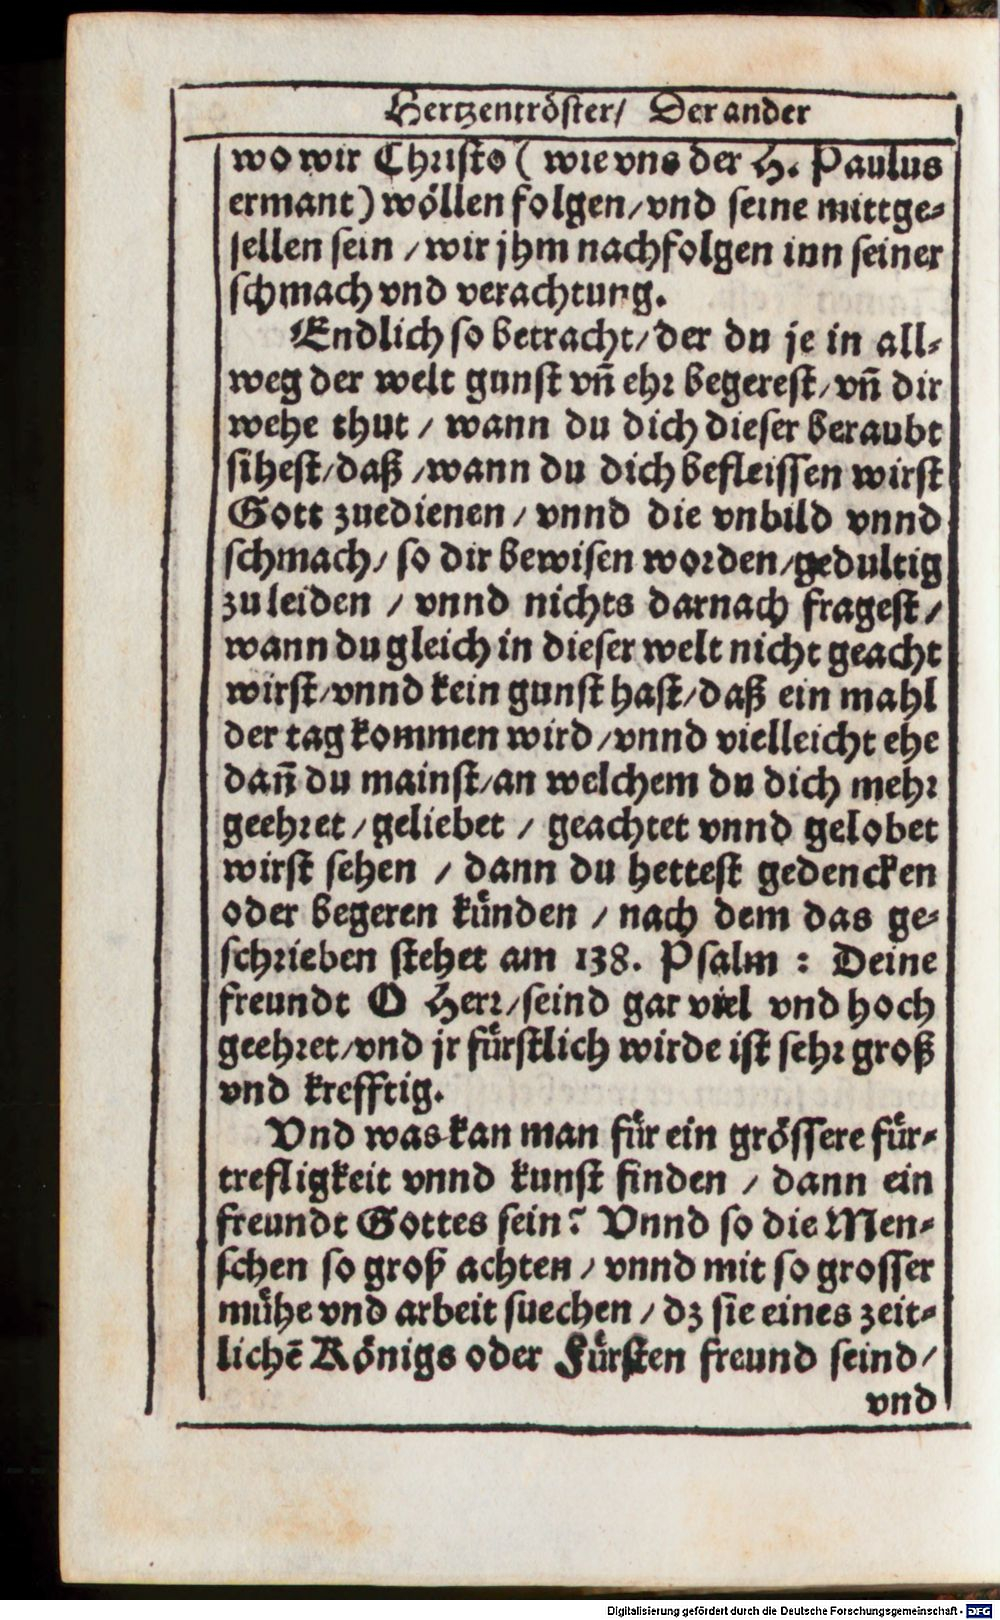 Hertzentröster/ Der ander
wo wir Christo (wie vns der H. Paulus
ermant) wöllen folgen/vnd seine mittge-
sellen sein/wir jhm nachfolgen inn seiner
schmach vnd verachtung.
Endlich so betracht/der du je in all-
weg der welt gunst vñ ehr begerest/vñ dir
wehe thut/wann du dich dieser beraubt
sihest/daß/wann du dich befleissen wirst
Gott zuedienen/vnnd die vnbild vnnd
schmach/so dir bewisen worden/gedultig
zu leiden/vnnd nichts darnach fragest/
wann du gleich in dieser welt nicht geacht
wirst/vnnd kein gunst hast/daß ein mahl
der tag kommen wird/vnnd vielleicht ehe
dañ du mainst/an welchem du dich mehr
geehret/geliebet/geachtet vnnd gelobet
wirst sehen/dann du hettest gedencken
oder begeren künden/nach dem das ge-
schrieben stehet am 138. Psalm: Deine
freundt O Herr/seind gar viel vnd hoch
geehret/vnd jr fürstlich wirde ist sehr groß
vnd krefftig.
Vnd was kan man für ein grössere für-
trefligkeit vnnd kunst finden/dann ein
freundt Gottes sein? Vnnd so die Men-
schen so groß achten/vnnd mit so grosser
mühe vnd arbeit suechen/dz sie eines zeit-
lichē Königs oder Fürsten freund seind/
vnd
Digitalisierung gefördert durch die Deutsche Forschungsgemeinschaft - DFG